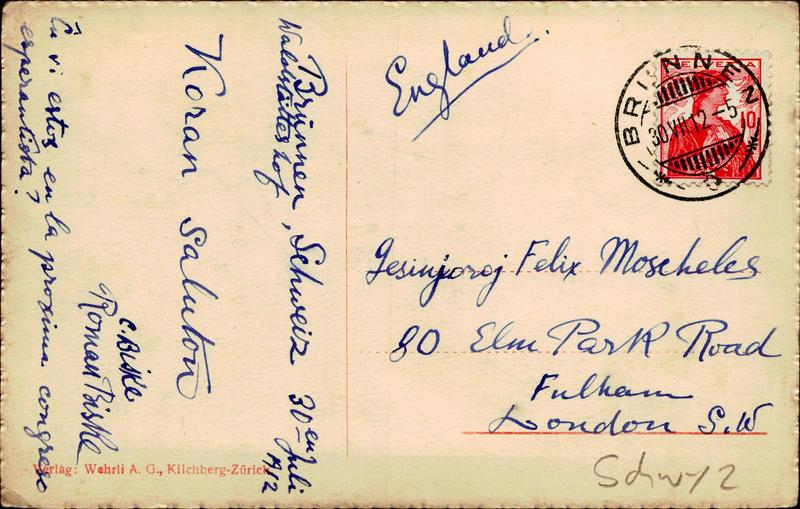 Brunnen, Schweiz 30en Juli
Waldstätterhof 1912
Koran Saluton
C. Biske
Roman Biske
Ĉu vi estos en la proxima congreso
esperantista?
Verlag: Wehrli A. G., Kilchberg-Zürich
England.
HELVETIA
10
BRUNNEN
30.VII.12-5
Gesinjoroj Felix Moscheles
80 Elm Park Road
Fulham
London S.W
Schwyz